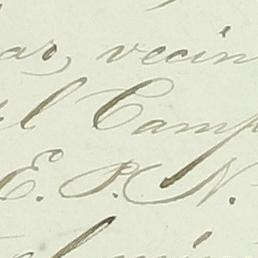 ar, vecin
el Camp
E. P. N.